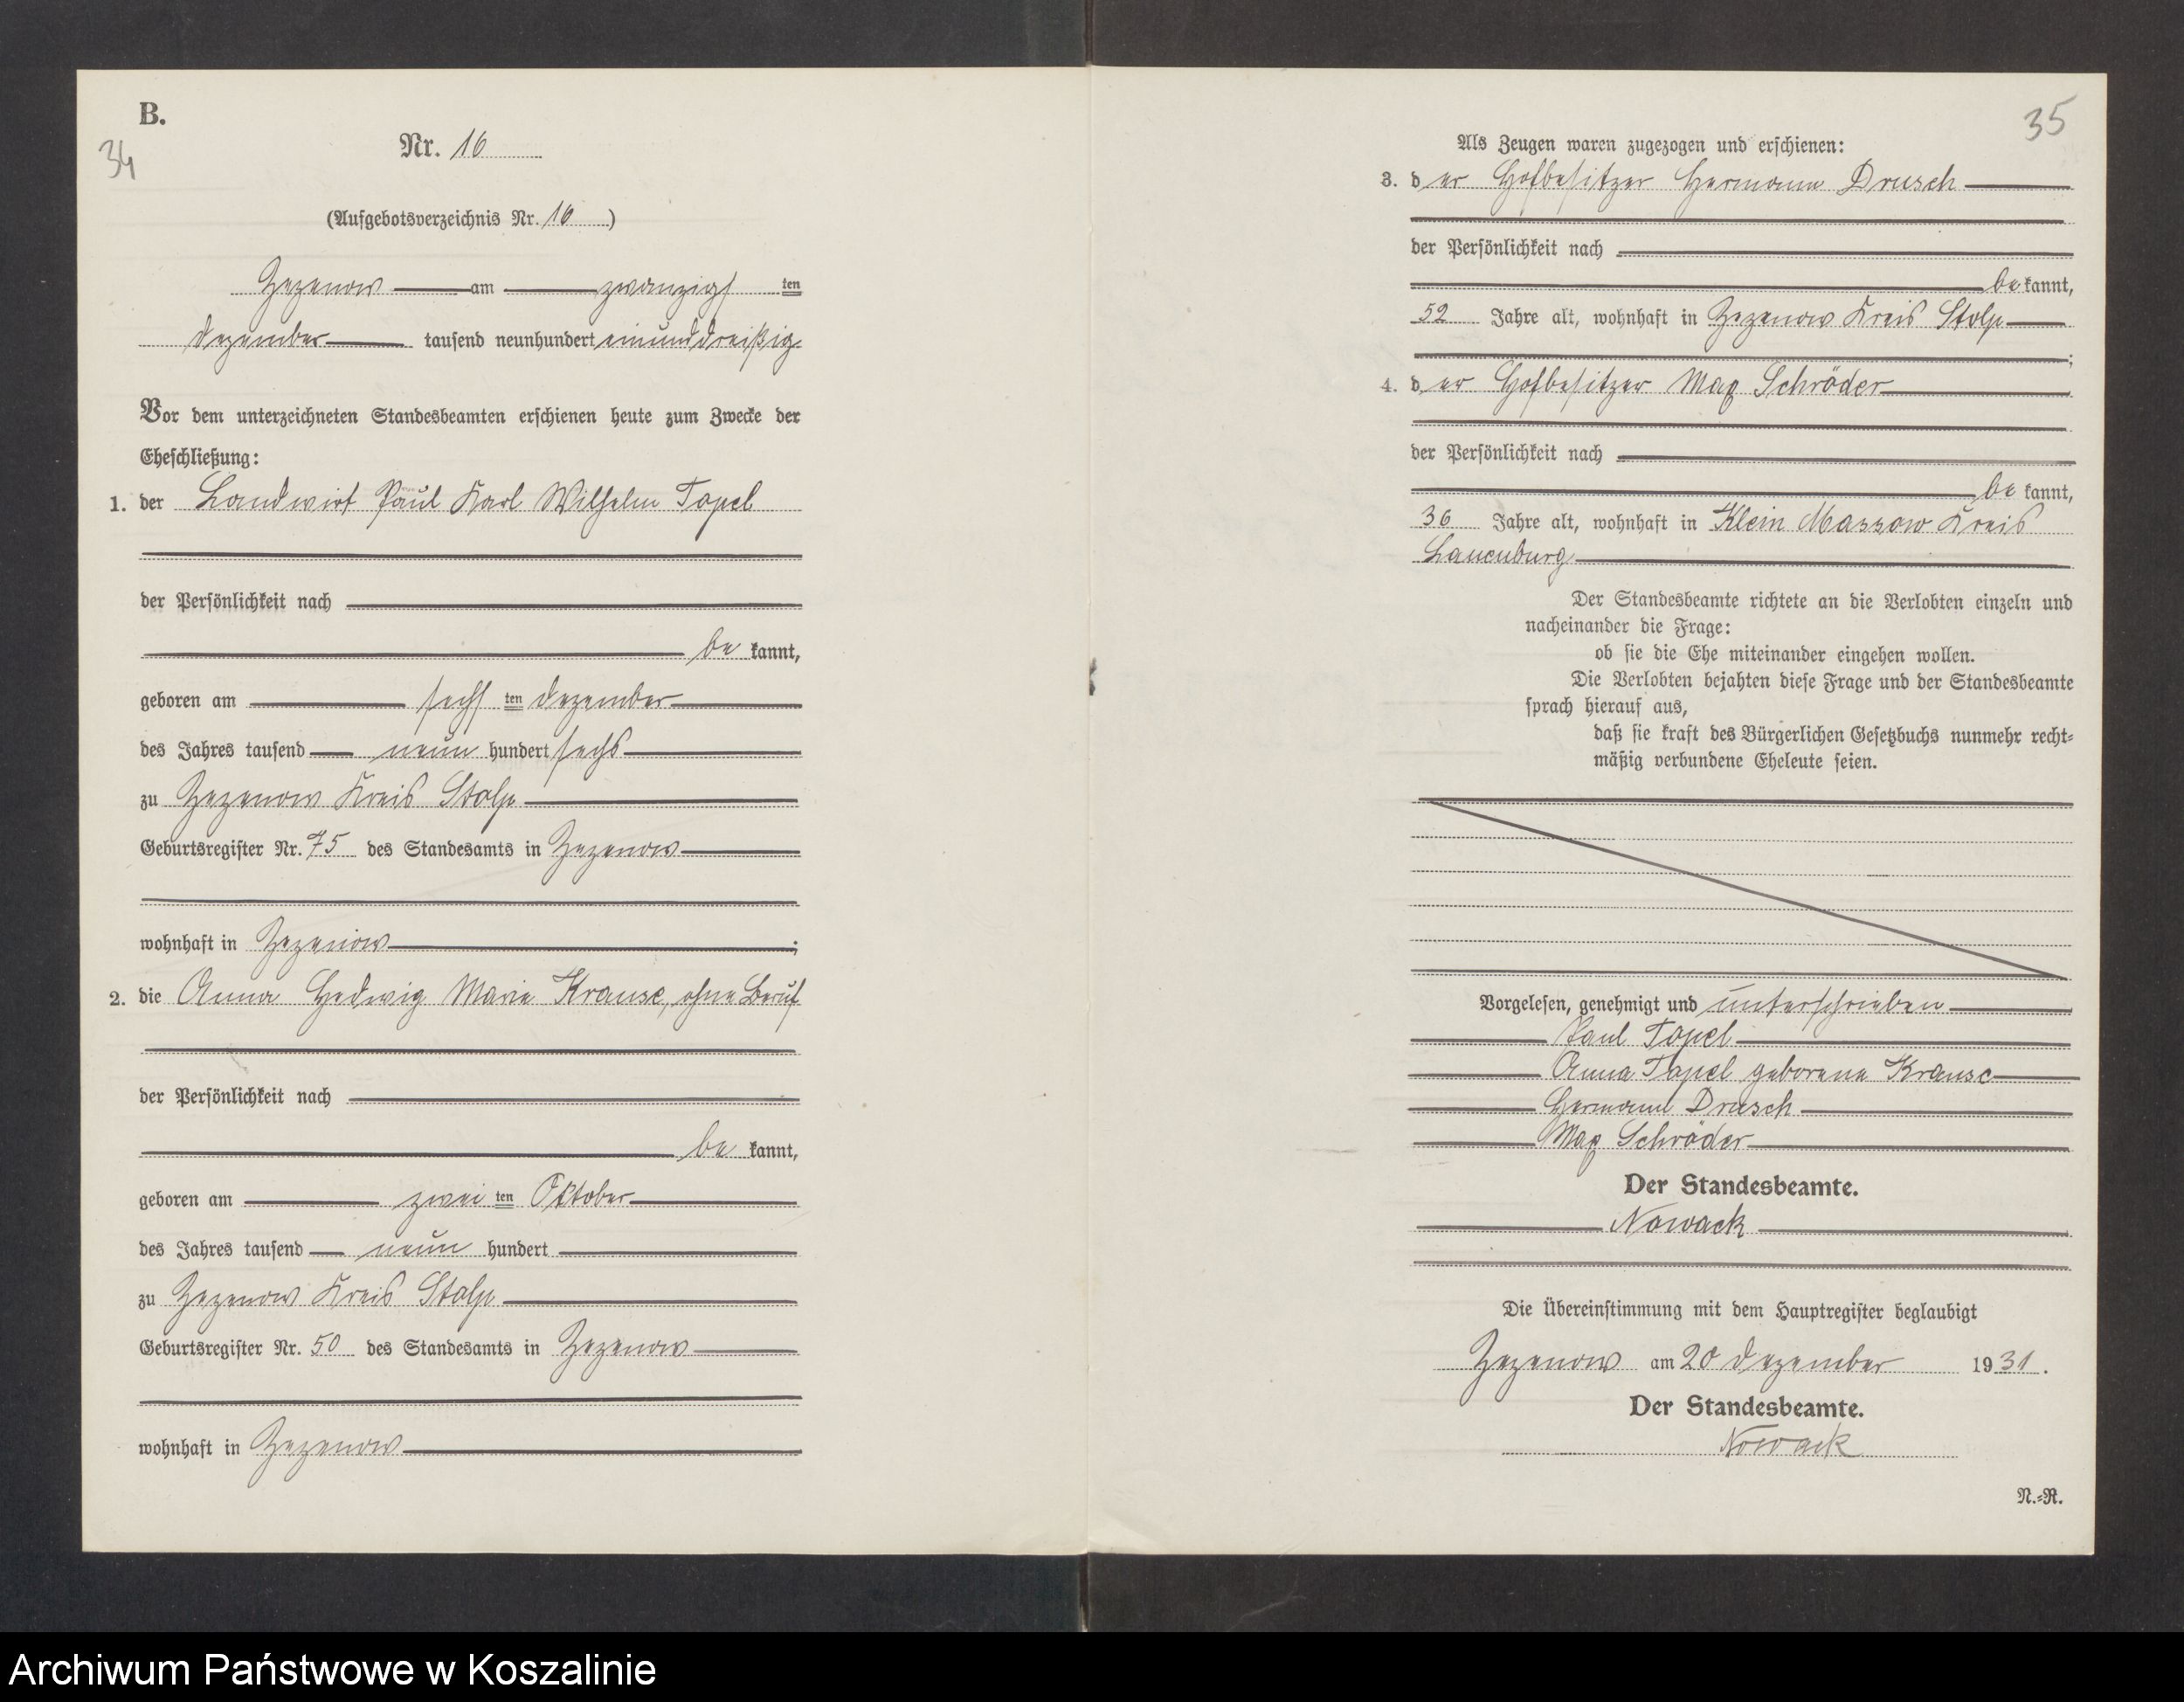 B.
34
Nr. 16
(Aufgebotsverzeichnis Nr. 16)
Zezenow am zwanzigsten
Dezember tausend neunhundert einunddreißig
Vor dem unterzeichneten Standesbeamten erschienen heute zum Zwecke der
Eheschließung:
1. der Landwirt Paul Karl Wilhelm Topel
der Persönlichkeit nach
be kannt,
geboren am sechsten Dezember
des Jahres tausend neun hundert sechs
zu Zezenow Kreis Stolp
Geburtsregister Nr. 75 des Standesamts in Zezenow
wohnhaft in Zezenow;
2. die Anna Hedwig Marie Krause, ohne Beruf
der Persönlichkeit nach
be kannt,
geboren am zweiten Oktober
des Jahres tausend neun hundert
zu Zezenow Kreis Stolp
Geburtsregister Nr. 50 des Standesamts in Zezenow
wohnhaft in Zezenow
35
Als Zeugen waren zugezogen und erschienen:
3. der Hofbesitzer Hermann Drusch
der Persönlichkeit nach
be kannt,
52 Jahre alt, wohnhaft in Zezenow Kreis Stolp
;
4. der Hofbesitzer Max Schröder
der Persönlichkeit nach
be kannt,
36 Jahre alt, wohnhaft in Klein Massow Kreis
Lauenburg
Der Standesbeamte richtete an die Verlobten einzeln und
nacheinander die Frage:
ob sie die Ehe miteinander eingehen wollen.
Die Verlobten bejahten diese Frage und der Standesbeamte
sprach hierauf aus,
daß sie kraft des Bürgerlichen Gesetzbuchs nunmehr recht-
mäßig verbundene Eheleute seien.
Vorgelesen, genehmigt und unterschrieben
Paul Topel
Anna Topel geborene Krause
Hermann Drusch
Max Schröder
Der Standesbeamte.
Nowack
Die Übereinstimmung mit dem Hauptregister beglaubigt
Zezenow am 20 Dezember 1931.
Der Standesbeamte.
Nowack
N.-R.
Archiwum Państwowe w Koszalinie